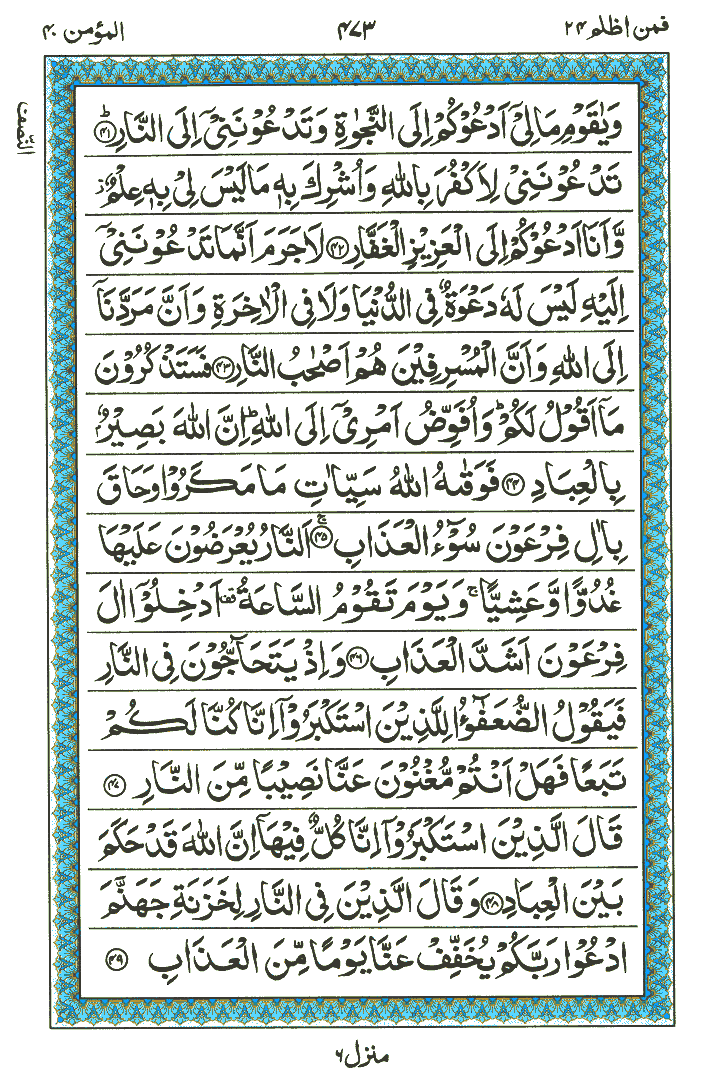 فمن اظلم ۲۴
۴۷۳
المؤمن ۴۰
النّصف
وَیٰقَوْمِ مَا لِیْۤ اَدْعُوْكُمْ اِلَی النَّجٰوةِ وَ تَدْعُوْنَنِیْۤ اِلَی النَّارِؕ۝۴۱
تَدْعُوْنَنِیْ لِاَكْفُرَ بِاللّٰهِ وَ اُشْرِكَ بِهٖ مَا لَیْسَ لِیْ بِهٖ عِلْمٌ ؗ
وَّ اَنَا اَدْعُوْكُمْ اِلَی الْعَزِیْزِ الْغَفَّارِ۝۴۲ لَا جَرَمَ اَنَّمَا تَدْعُوْنَنِیْۤ
اِلَیْهِ لَیْسَ لَهٗ دَعْوَةٌ فِی الدُّنْیَا وَ لَا فِی الْاٰخِرَةِ وَ اَنَّ مَرَدَّنَاۤ
اِلَی اللّٰهِ وَ اَنَّ الْمُسْرِفِیْنَ هُمْ اَصْحٰبُ النَّارِ۝۴۳ فَسَتَذْكُرُوْنَ
مَاۤ اَقُوْلُ لَكُمْؕ وَ اُفَوِّضُ اَمْرِیْۤ اِلَی اللّٰهِؕ اِنَّ اللّٰهَ بَصِیْرٌۢ
بِالْعِبَادِ۝۴۴ فَوَقٰىهُ اللّٰهُ سَیِّاٰتِ مَا مَكَرُوْا وَ حَاقَ
بِاٰلِ فِرْعَوْنَ سُوْٓءُ الْعَذَابِۚ۝۴۵ اَلنَّارُ یُعْرَضُوْنَ عَلَیْهَا
غُدُوًّا وَّ عَشِیًّاۚ وَ یَوْمَ تَقُوْمُ السَّاعَةُ۫ اَدْخِلُوْۤا اٰلَ
فِرْعَوْنَ اَشَدَّ الْعَذَابِ۝۴۶ وَ اِذْ یَتَحَآجُّوْنَ فِی النَّارِ
فَیَقُوْلُ الضُّعَفٰٓؤُا لِلَّذِیْنَ اسْتَكْبَرُوْۤا اِنَّا كُنَّا لَكُمْ
تَبَعًا فَهَلْ اَنْتُمْ مُّغْنُوْنَ عَنَّا نَصِیْبًا مِّنَ النَّارِ ۝۴۷
قَالَ الَّذِیْنَ اسْتَكْبَرُوْۤا اِنَّا كُلٌّ فِیْهَاۤ اِنَّ اللّٰهَ قَدْ حَكَمَ
بَیْنَ الْعِبَادِ۝۴۸ وَ قَالَ الَّذِیْنَ فِی النَّارِ لِخَزَنَةِ جَهَنَّمَ
ادْعُوْا رَبَّكُمْ یُخَفِّفْ عَنَّا یَوْمًا مِّنَ الْعَذَابِ ۝۴۹
منزل ۶